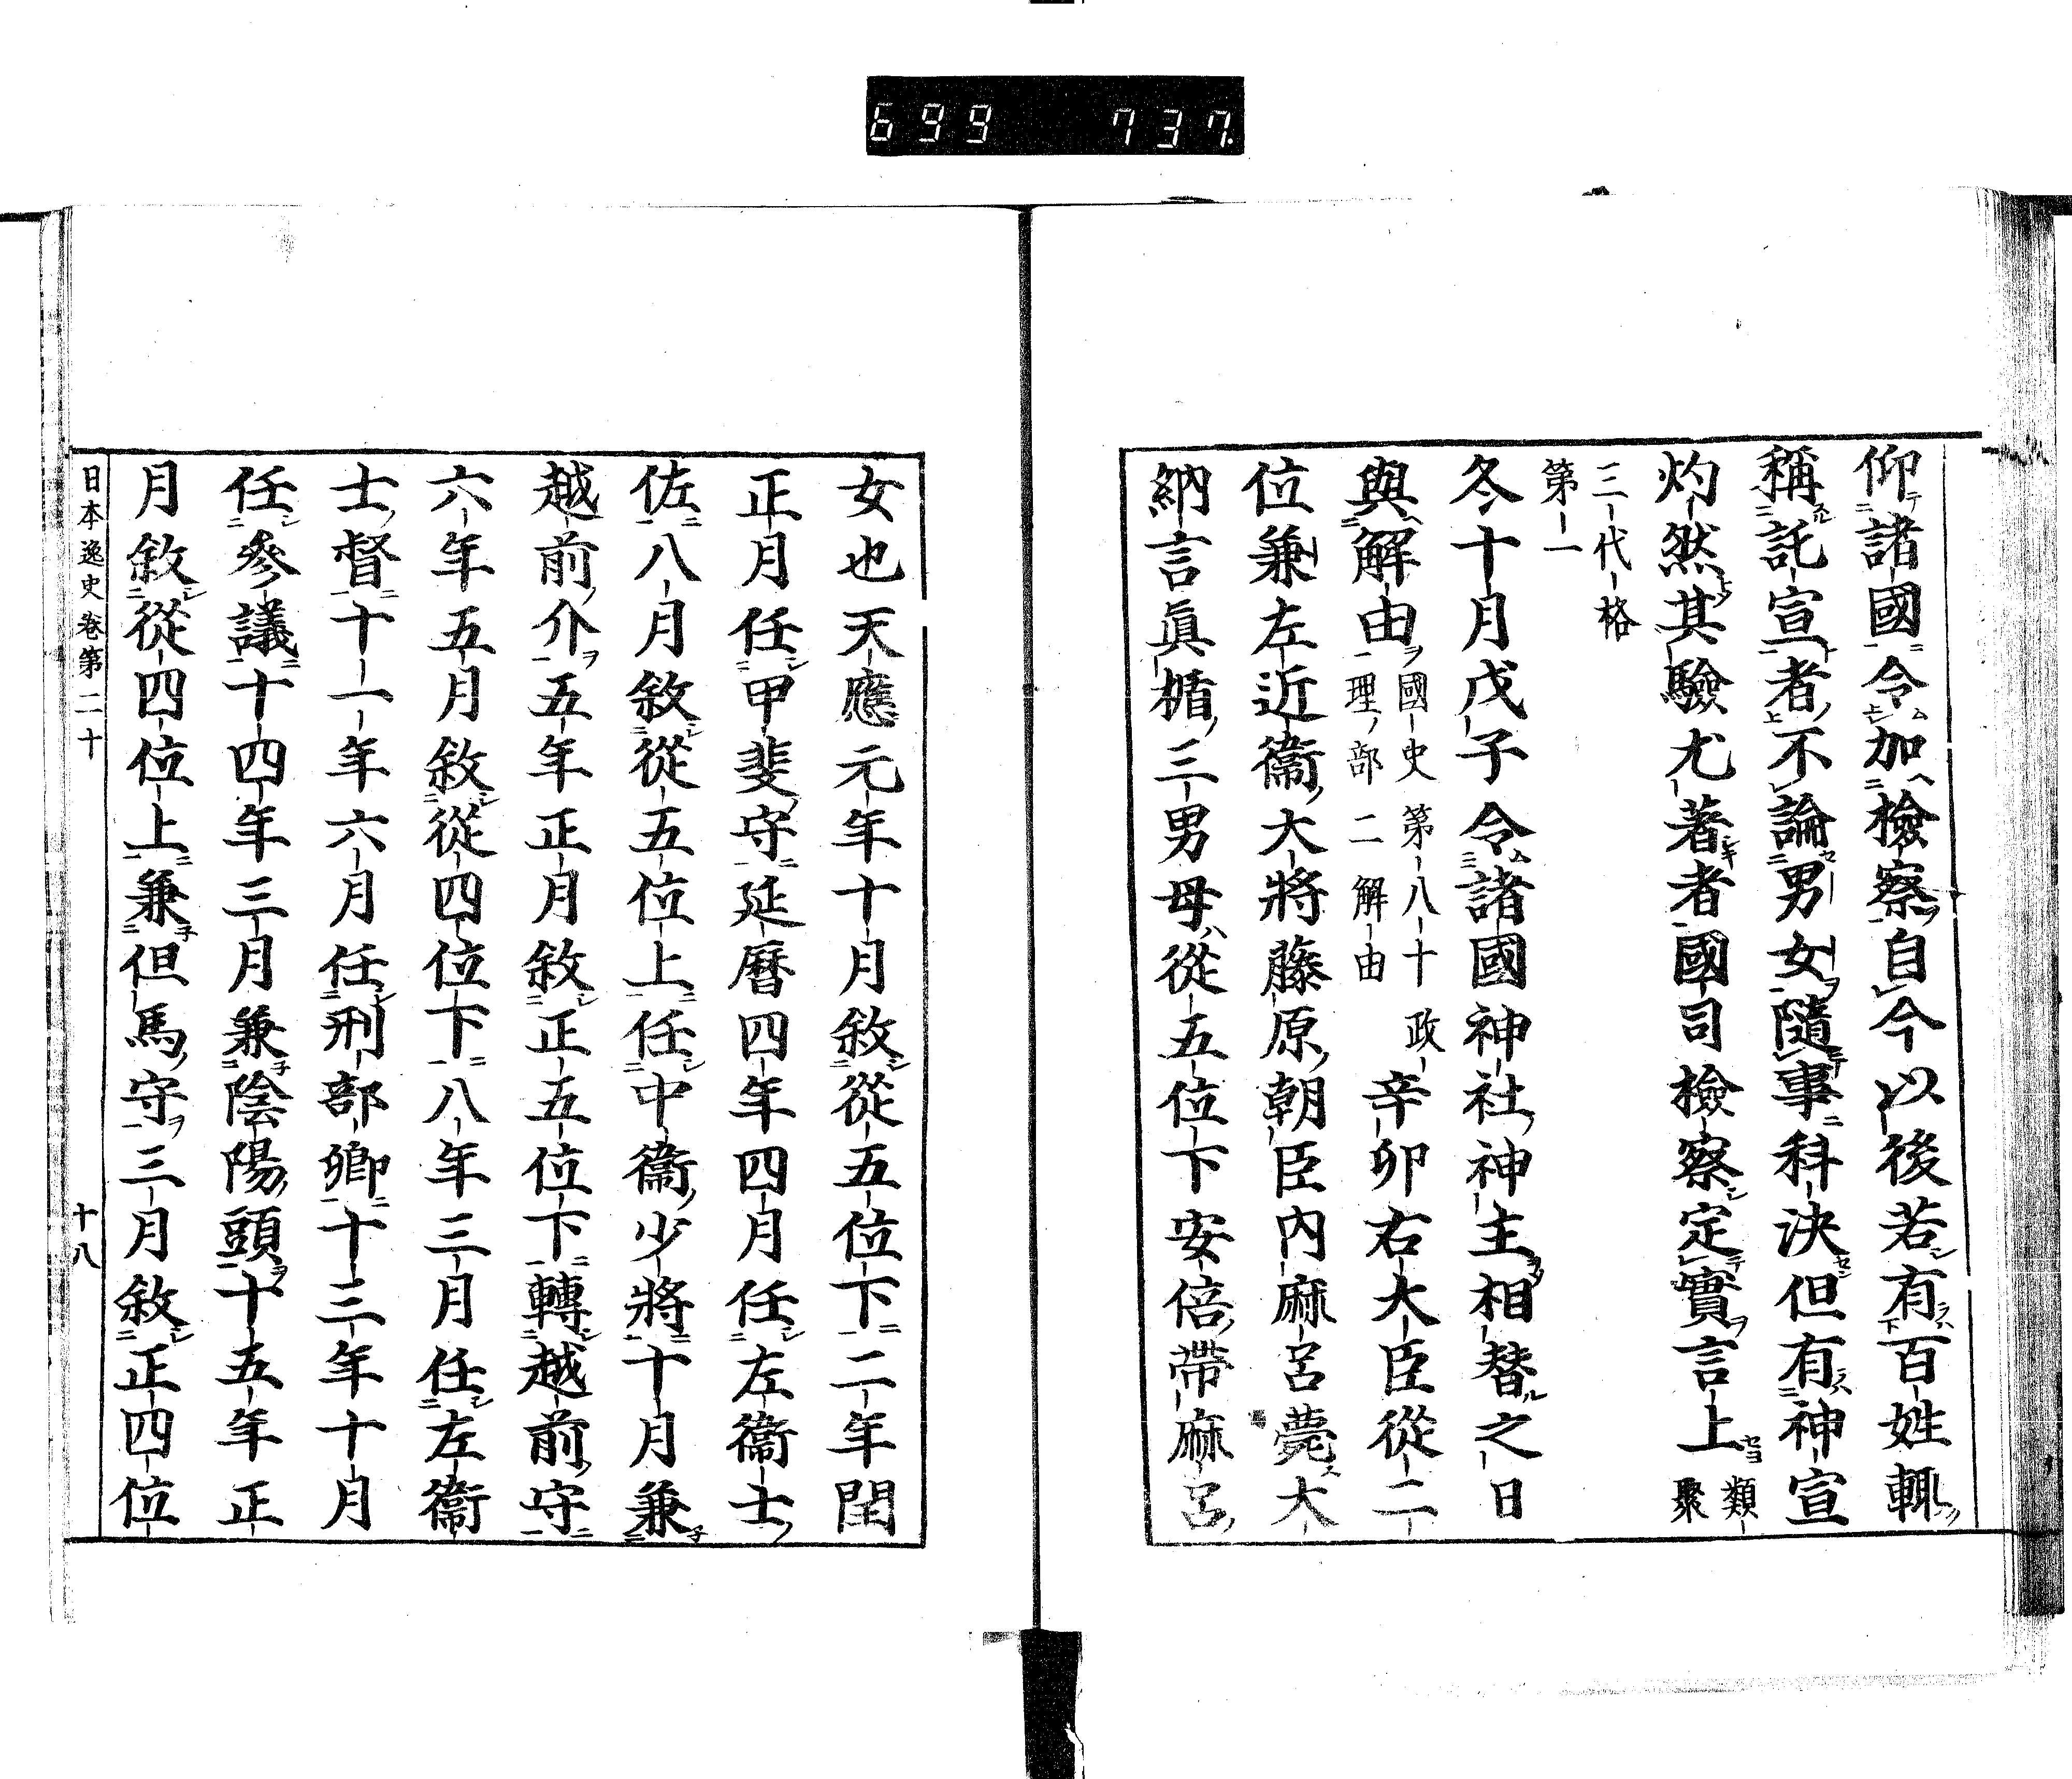 699 737.
仰諸國令加檢察自今以後若有百姓輙
稱託宣者不論男女隨事科決但有神宣
灼然其驗尤著者國司檢察定實言上類聚
三代格
第一
冬十月戊子令諸國神社神主相替之日
與解由國史第八十政理部二解由辛卯右大臣從二
位兼左近衞大將藤原朝臣內麻呂薨大
納言眞楯三男母從五位下安倍帶麻呂
女也天應元年十月敘從五位下二年閏
正月任甲斐守延曆四年四月任左衞士
佐八月敘從五位上任中衞少將十月兼
越前介五年正月敘正五位下轉越前守
六年五月敘從四位下八年三月任左衞
士督十一年六月任刑部卿十三年十月
任參議十四年三月兼陰陽頭十五年正
月敘從四位上兼但馬守三月敘正四位
日本逸史卷第二十 十八